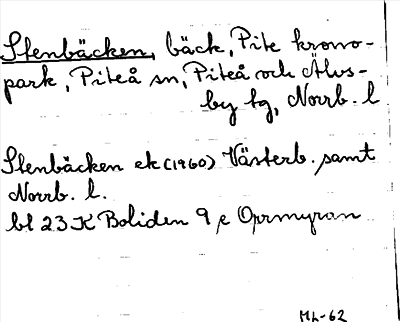 Stenbäcken, bäck, Pite krono-
park, Piteå sn, Piteå och Älvs-
by tg, Norrb. l
Stenbäcken ek (1960) Västerb. samt
Norrb. l.
bl 23 K Boliden 9 e Orrmyran
ML-62